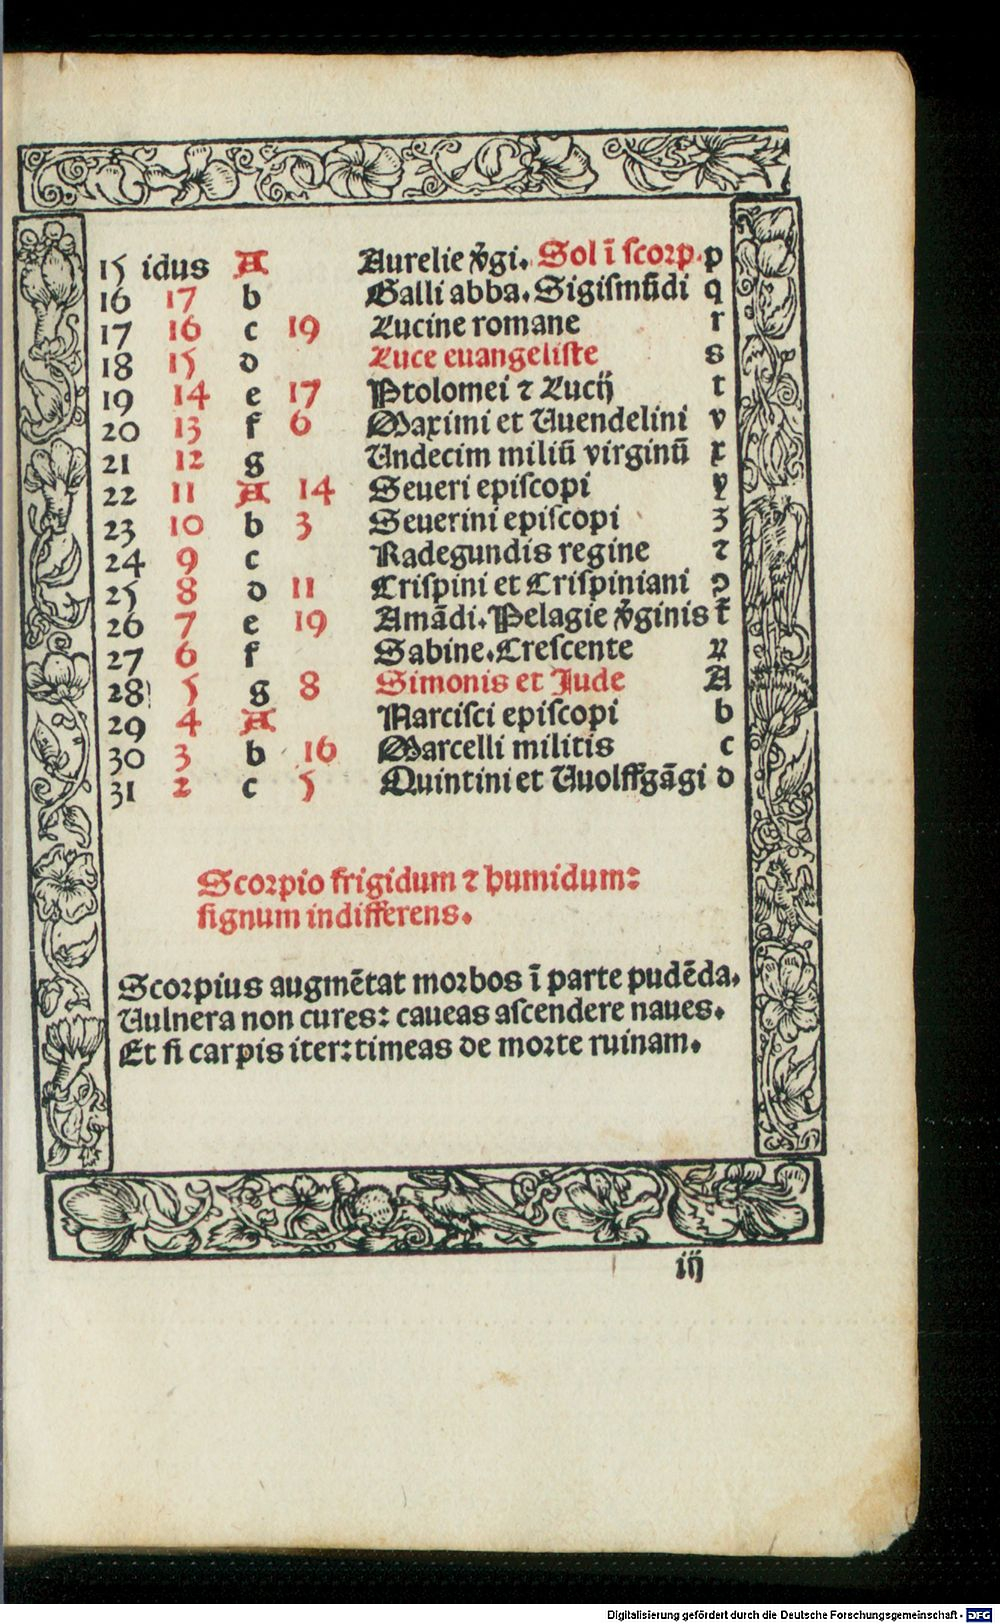 15 idus A Aurelie v̄gi. Sol ī scorp. p
16 17 b Galli abba. Sigismūdi q
17 16 c 19 Lucine romane r
18 15 d Luce euangeliste s
19 14 e 17 Ptolomei ⁊ Lucij t
20 13 f 6 Maximi et Vuendelini v
21 12 g Undecim miliū virginū x
22 11 A 14 Seueri episcopi y
23 10 b 3 Seuerini episcopi z
24 9 c Radegundis regine ⁊
25 8 d 11 Crispini et Crispiniani ꝯ
26 7 e 19 Amādi. Pelagie v̄ginis
27 6 f Sabine. Crescente
28 5 g 8 Simonis et Jude A
29 4 A Narcisci episcopi b
30 3 b 16 Marcelli militis c
31 2 c 5 Quintini et Vuolffgāgi d
Scorpio frigidum ⁊ humidum:
signum indifferens.
Scorpius augmētat morbos ī parte pudēda.
Vulnera non cures: caueas ascendere naues.
Et si carpis iter: timeas de morte ruinam.
iij
Digitalisierung gefördert durch die Deutsche Forschungsgemeinschaft - DFG